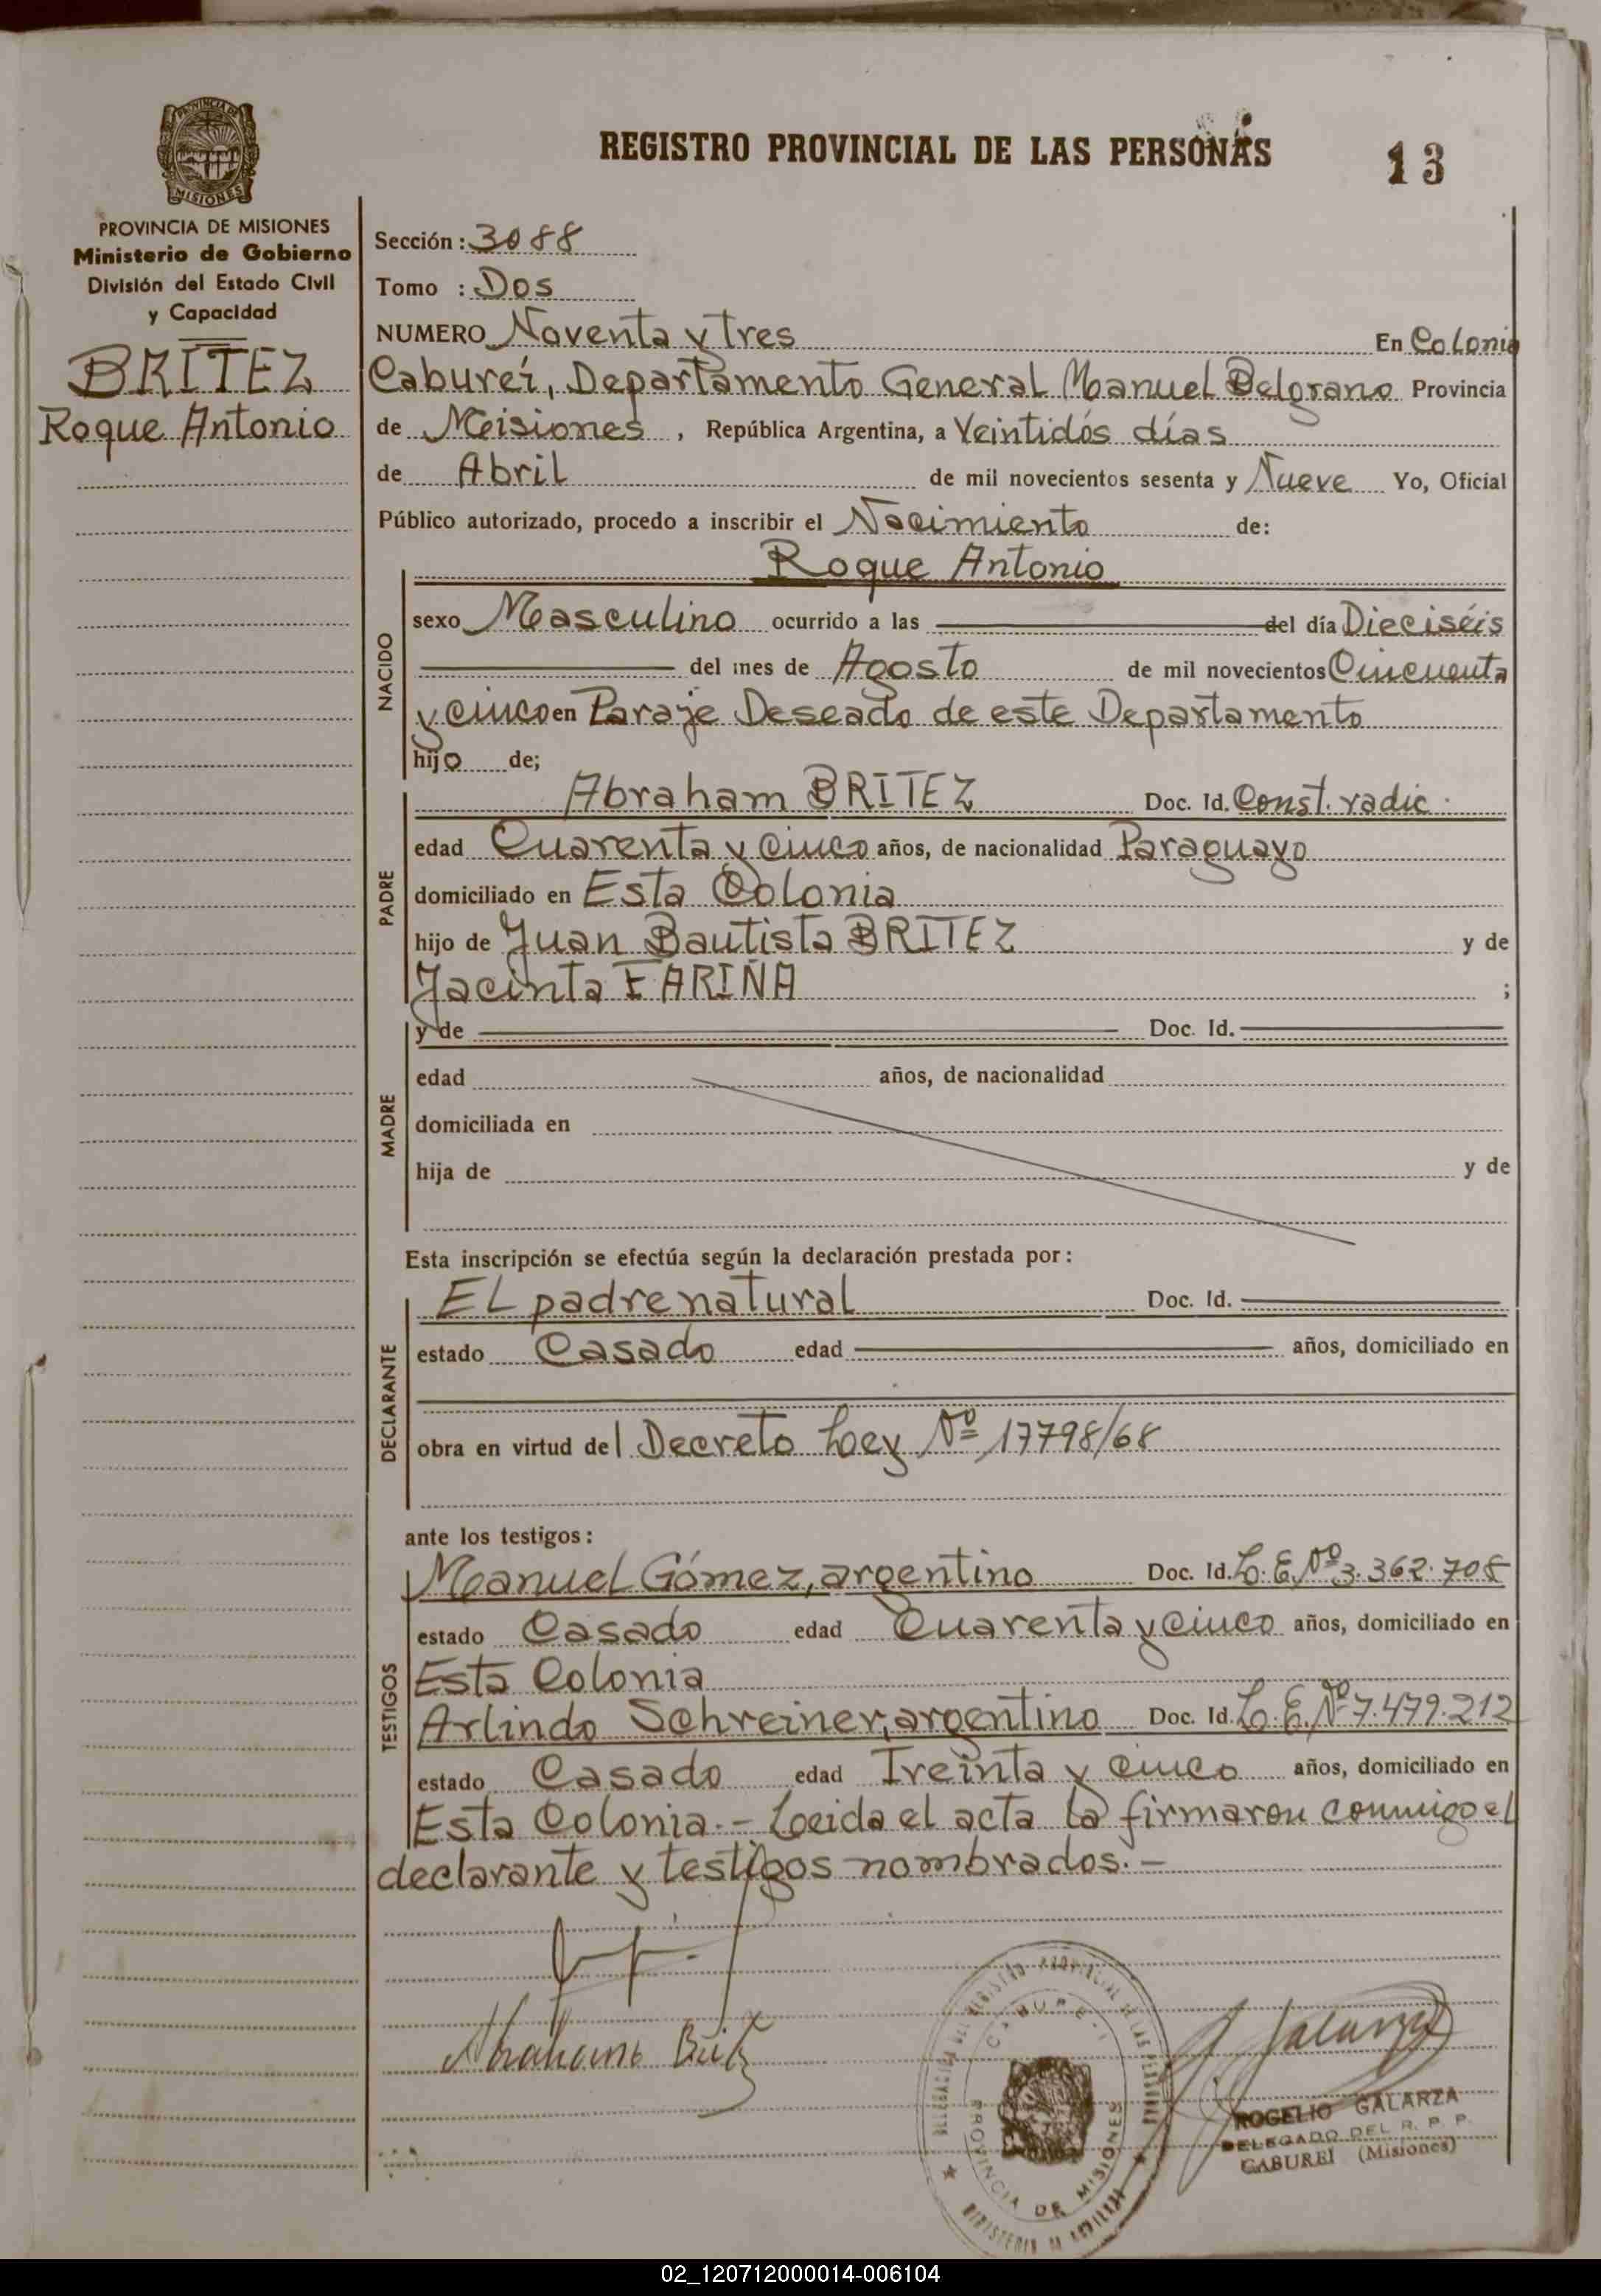 PROVINCIA DE MISIONES
REGISTRO PROVINCIAL DE LAS PERSONAS
13
PROVINCIA DE MISIONES
Ministerio de Gobierno
División del Estado Civil
y Capacidad
BRÍTEZ
Roque Antonio
Sección: 3088
Tomo : Dos
NUMERO Noventa y Tres En Colonia
Cabureí, Departamento General Manuel Belgrano Provincia
de Misiones, República Argentina, a Veintidós días
de Abril de mil novecientos sesenta y Nueve Yo, Oficial
Público autorizado, procedo a inscribir el Nacimiento de:
Roque Antonio
NACIDO
sexo Masculino ocurrido a las del día Dieciséis
del mes de Agosto de mil novecientos Cincuenta
y cinco en Paraje Deseado de este Departamento
hijo de;
PADRE
Abraham BRITEZ Doc. Id. Const. radic.
edad Cuarenta y Cinco años, de nacionalidad Paraguayo
domiciliado en Esta Colonia
hijo de Juan Bautista BRITEZ y de
Jacinta FARIÑA ;
MADRE
y de Doc. Id.
edad años, de nacionalidad
domiciliada en
hija de y de
Esta inscripción se efectúa según la declaración prestada por:
DECLARANTE
EL padre natural Doc. Id.
estado Casado edad años, domiciliado en
obra en virtud del Decreto Ley Nº 17798/68
ante los testigos:
TESTIGOS
Manuel Gómez, argentino Doc. Id. L.E. Nº 3.362.708
estado Casado edad Cuarenta y Cinco años, domiciliado en
Esta Colonia
Arlindo Schreiner, argentino Doc. Id. L.E. Nº 7.479.212
estado Casado edad Treinta y Cinco años, domiciliado en
Esta Colonia.- Leida el acta la firmaron conmigo el
declarante y testigos nombrados.-
CABURE-I
PROVINCIA DE MISIONES
Galarza
ROGELIO GALARZA
DELEGADO DEL R. P. P.
CABUREI (Misiones)
02_120712000014-006104